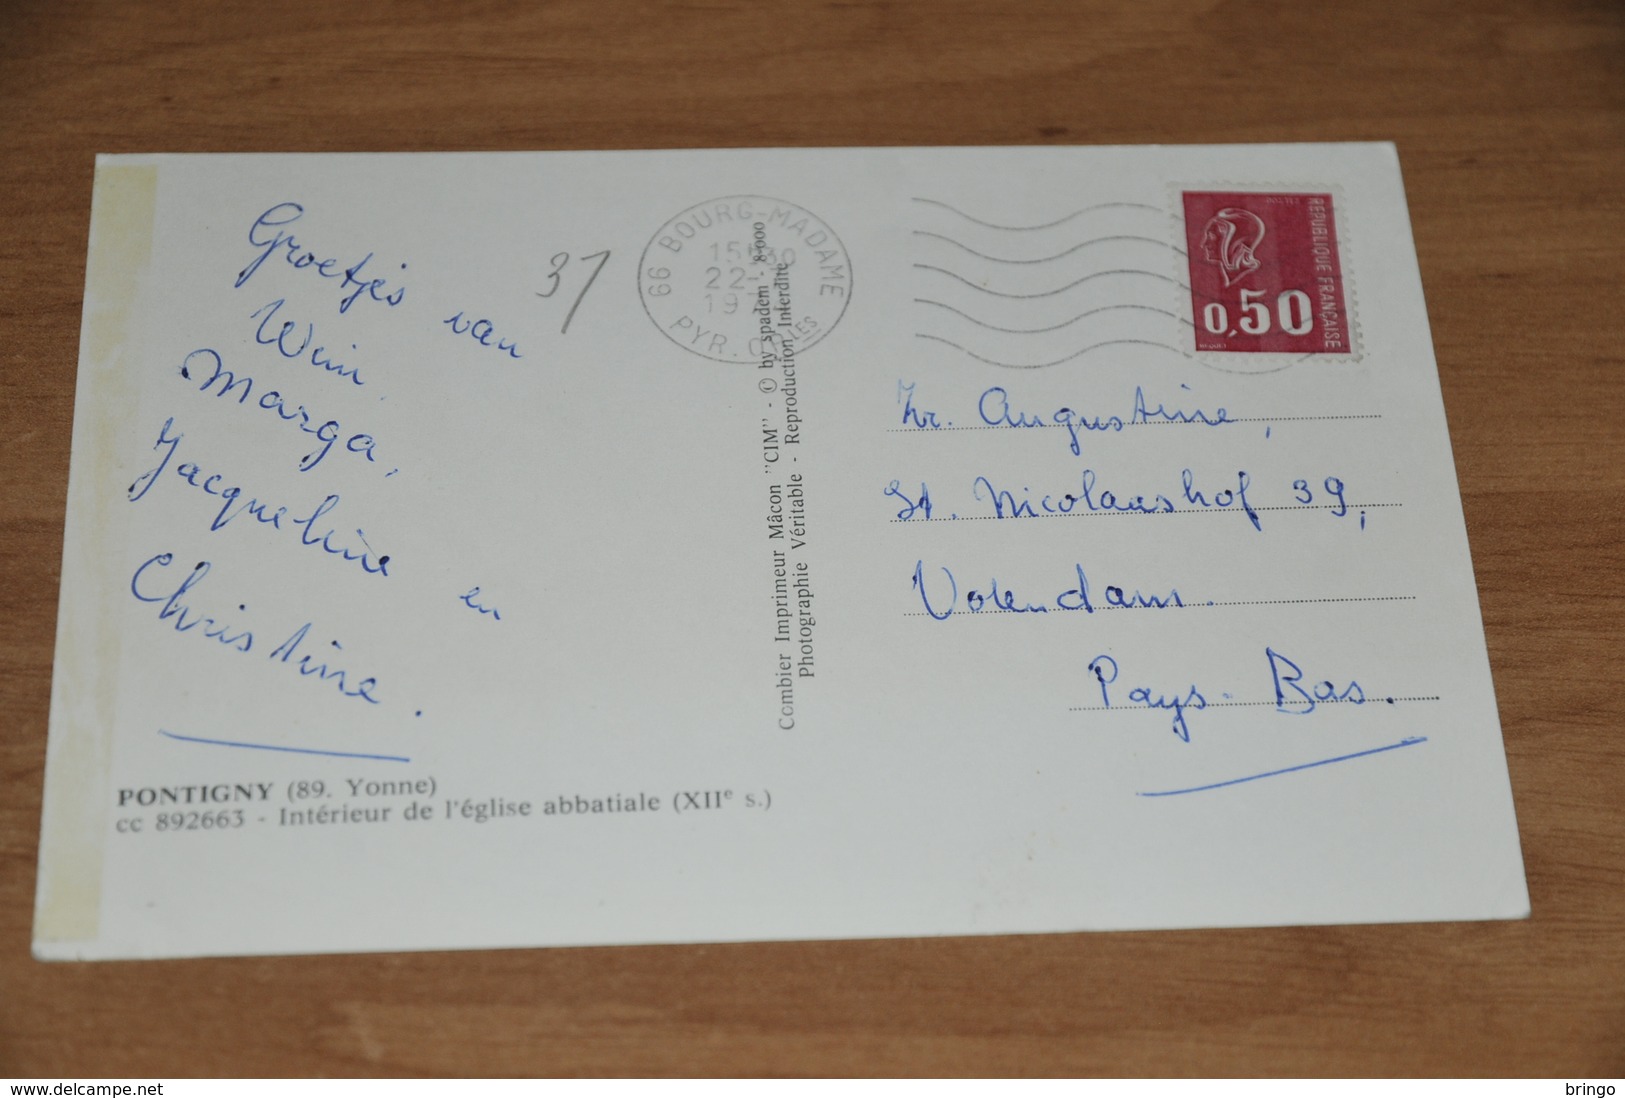 Groetjes van
Wim
Marga,
Jacqueline en
Christine.
37
PONTIGNY (89. Yonne)
cc 892663 - Intérieur de l'église abbatiale (XIIe s.)
Combier Imprimeur Mâcon "CIM" - © by spadem - 8-000
Photographie Véritable - Reproduction Interdite
66 BOURG-MADAME
22-
19
PYR. ORIES
POSTES
REPUBLIQUE FRANÇAISE
0,50
Zr. Augustine,
St. Nicolaashof 39,
Volendam.
Pays-Bas.
www.delcampe.net
bringo